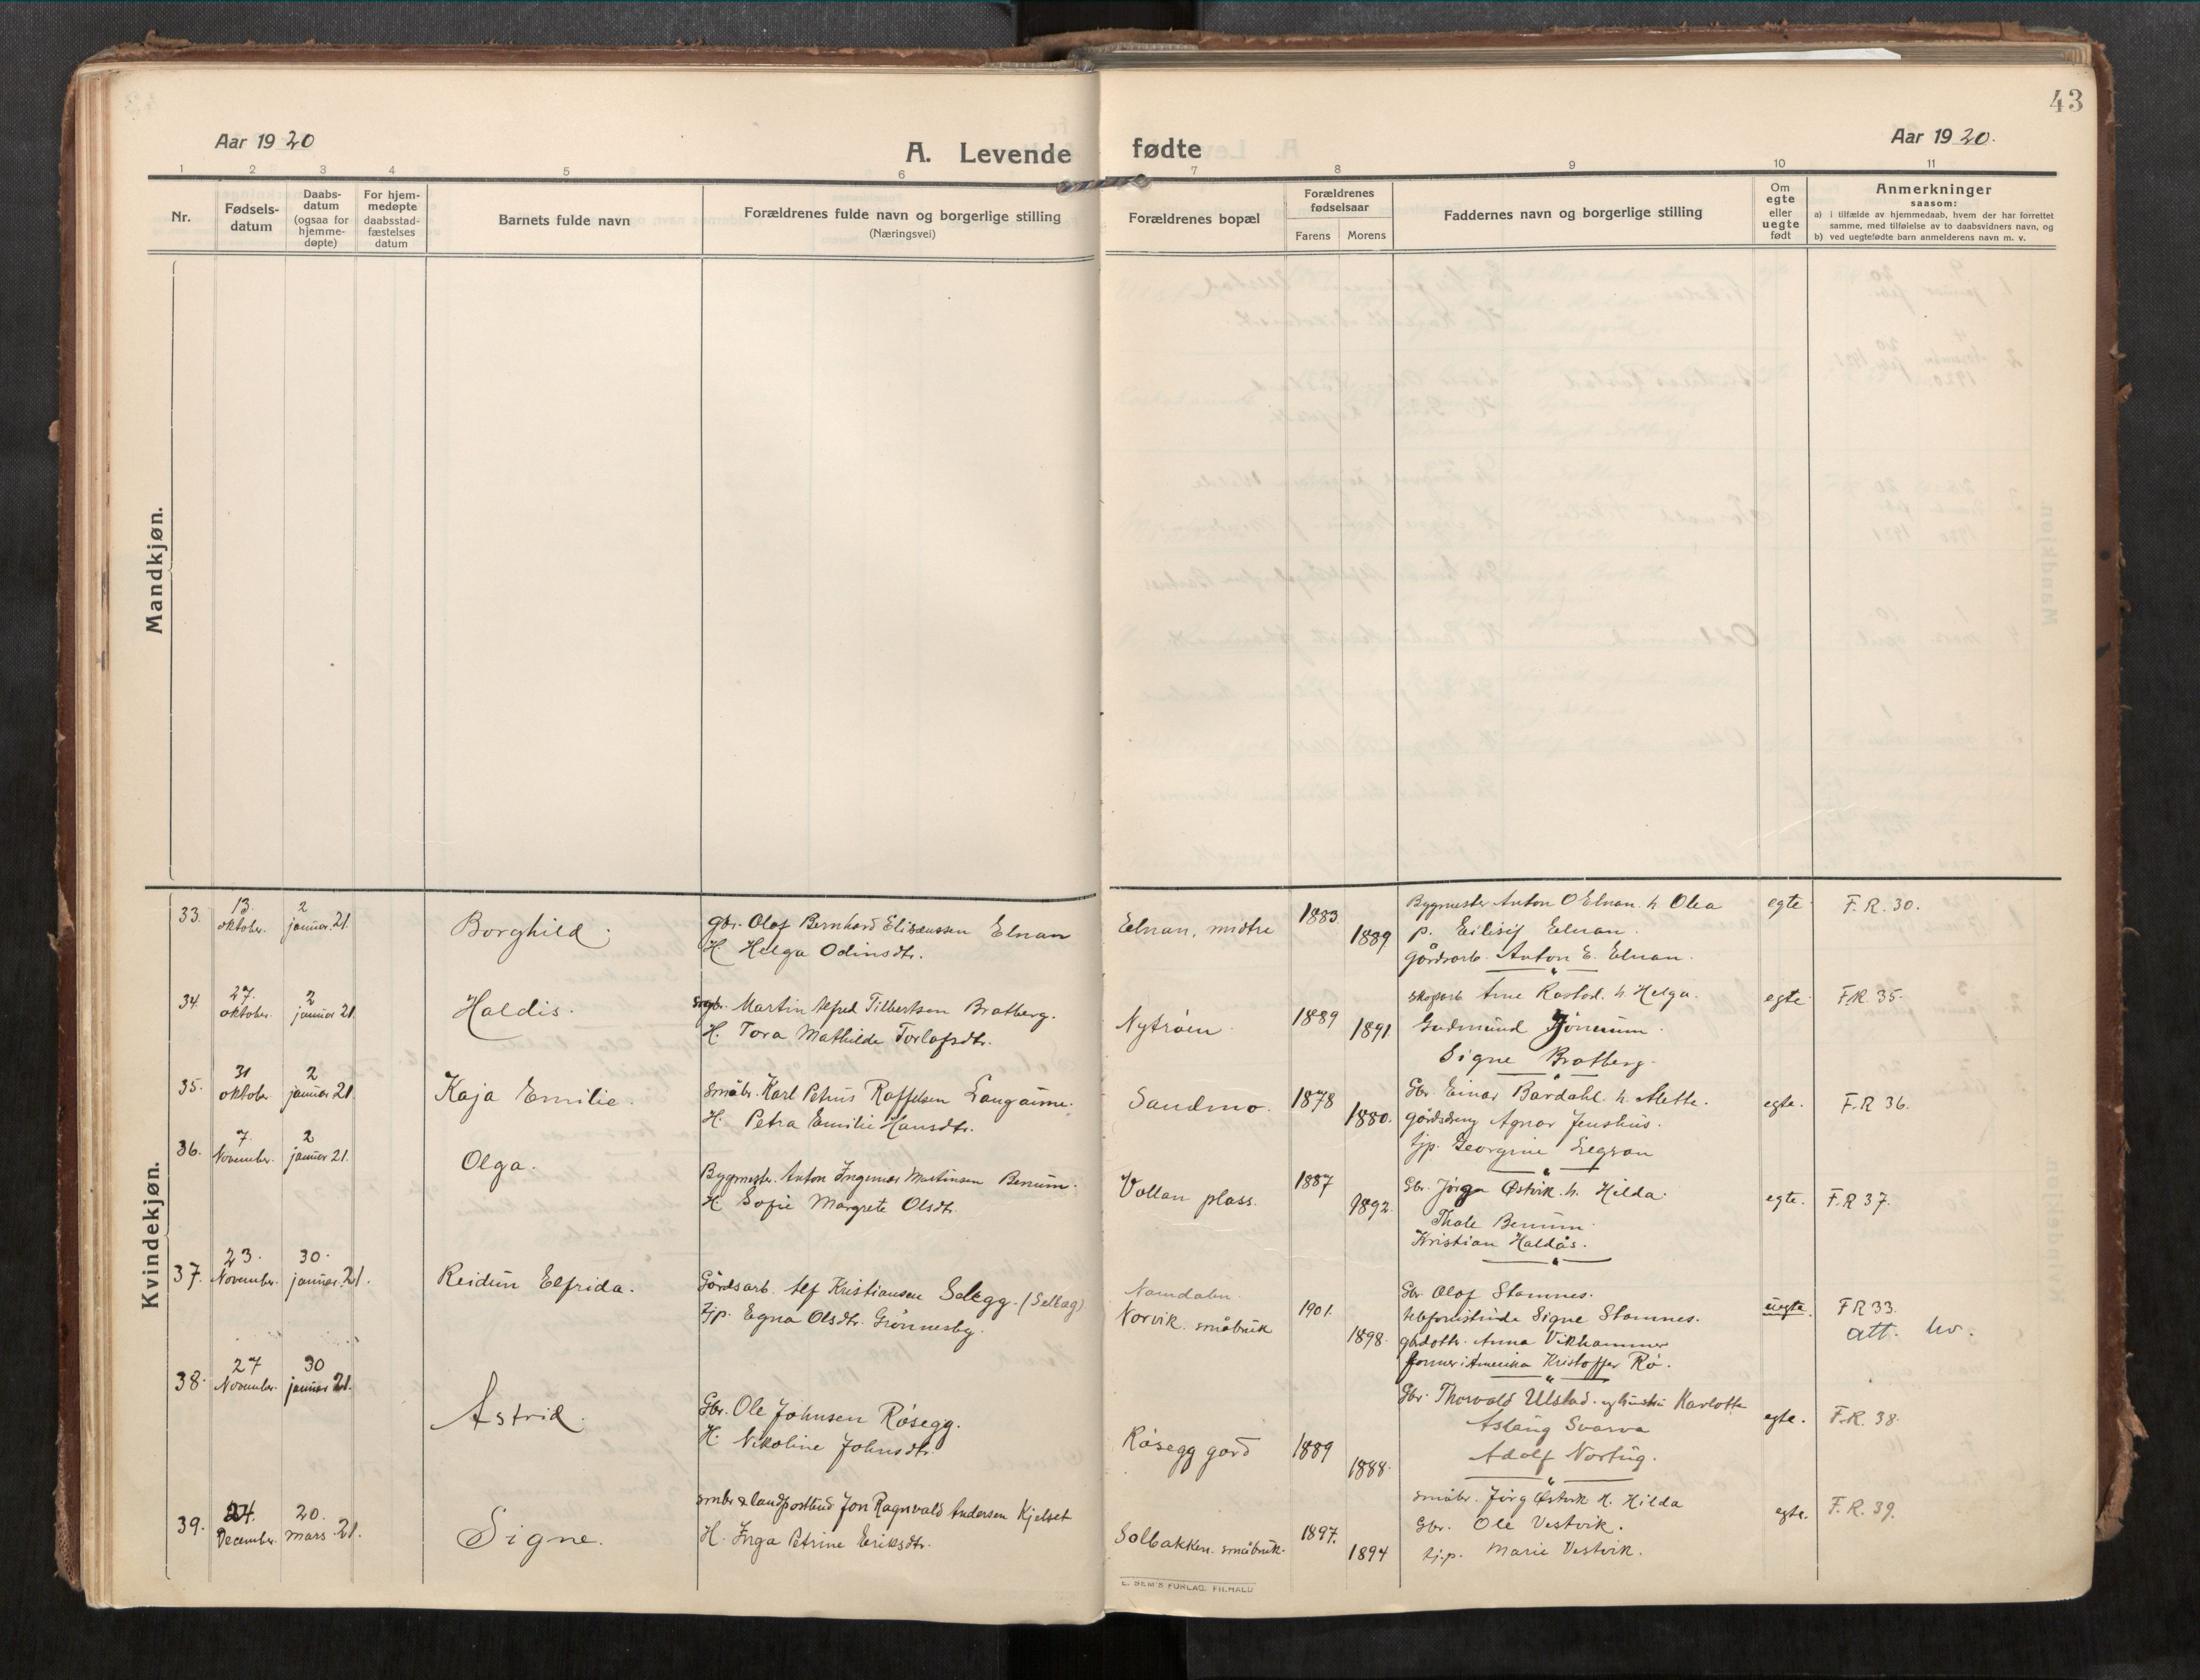 43
Aar 1920
A. Levende fødte
Aar 1920.
1 2 3 4 5 6 7 8 9 10 11
Nr.
Fødsels-
datum
Daabs-
datum
(ogsaa for
hjemme-
døpte)
For hjem-
medøpte
daabsstad-
fæstelses
datum
Barnets fulde navn
Forældrenes fulde navn og borgerlige stilling
(Næringsvei)
Forældrenes bopæl
Forældrenes
fødselsaar
Farens Morens
Faddernes navn og borgerlige stilling
Om
egte
eller
uegte
født
Anmerkninger
saasom:
a) i tilfælde av hjemmedaab, hvem der har forrettet
samme, med tilføielse av to daabsvidners navn, og
b) ved uegtefødte barn anmelderens navn m. v.
Mandkjøn.
Kvindekjøn.
33.
13.
oktober.
2
januar 21.
Borghild.
gbr. Olaf Bernhard Elisæussen Elnan
H Helga Odinsdtr.
Elnan, midtre
1883.
1889
Bygmester Anton O Elnan. h Olea
p. Eilisif Elnan.
gårdsarb. Anton E. Elnan.
egte
F. R. 30.
34
27.
oktober.
2
januar 21.
Haldis.
Martin Alfred Tilbertsen Bratberg.
H. Tora Mathilde Torlafsdtr.
Nytrøen
1889
1891.
Arne Rostad. h. Helga.
Gudmund
Signe Bratberg.
egte
F.R. 35.
35.
31
oktober
2
januar 21.
Kaja Emilie.
småbr. Karl Petrus Raffelsen Langaune.
H. Petra Emilie Hansdtr.
Sandmo.
1878
1880.
Gbr. Einar Bårdahl. h. Alette.
gårdsdreng Agnar Jenshus.
tjp. Georgine
egte.
F.R 36.
36.
7.
November.
2
januar 21.
Olga.
Bygmester. Anton Ingemar Martinsen Benum.
H Sofie Margrete Olsdtr.
Vollan plass.
1887
1892.
Gbr. Jørgen Østvik. h. Hilda.
Thale Benum.
Kristian Haldås.
egte.
F.R 37.
37.
23.
November.
30.
januar. 21.
Reidun Elfrida.
Gårdsarb. Alf Kristiansen Selegg. (Selbag)
tjp. Egna Olsdtr. Grønnesby.
Namdalen.
Norvik. småbruk
1901.
1898.
Gbr. Olaf Stamnes.
telefonistinde Signe Stamnes.
gårdottr. Anna Vikhammer
former i Amerika Kristoffer Rø.
uegte.
F R 33.
att. hv.
38.
27
November.
30
januar 21.
Astrid.
Gbr. Ole Johnsen Røsegg.
H. Nikoline Johnsdtr.
Røsegg gård
1889
1888.
Gbr. Thorvald Ulstad. og hustru Karlotte
Aslaug Svarva
Adolf Nortug.
egte.
F.R. 38.
39.
24.
December.
20.
mars. 21.
Signe.
småbr & landpostbud Jon Ragnvald Andersen Kjelset
H. Inga Petrine Eriksdtr.
Solbakken. småbruk.
1897.
1894
småbr. Jørg Østvik H. Hilda
Gbr. Ole Vestvik.
tj.p. Marie Vestvik.
egte.
F. R. 39.
E. SEM'S FORLAG, FR.HALD